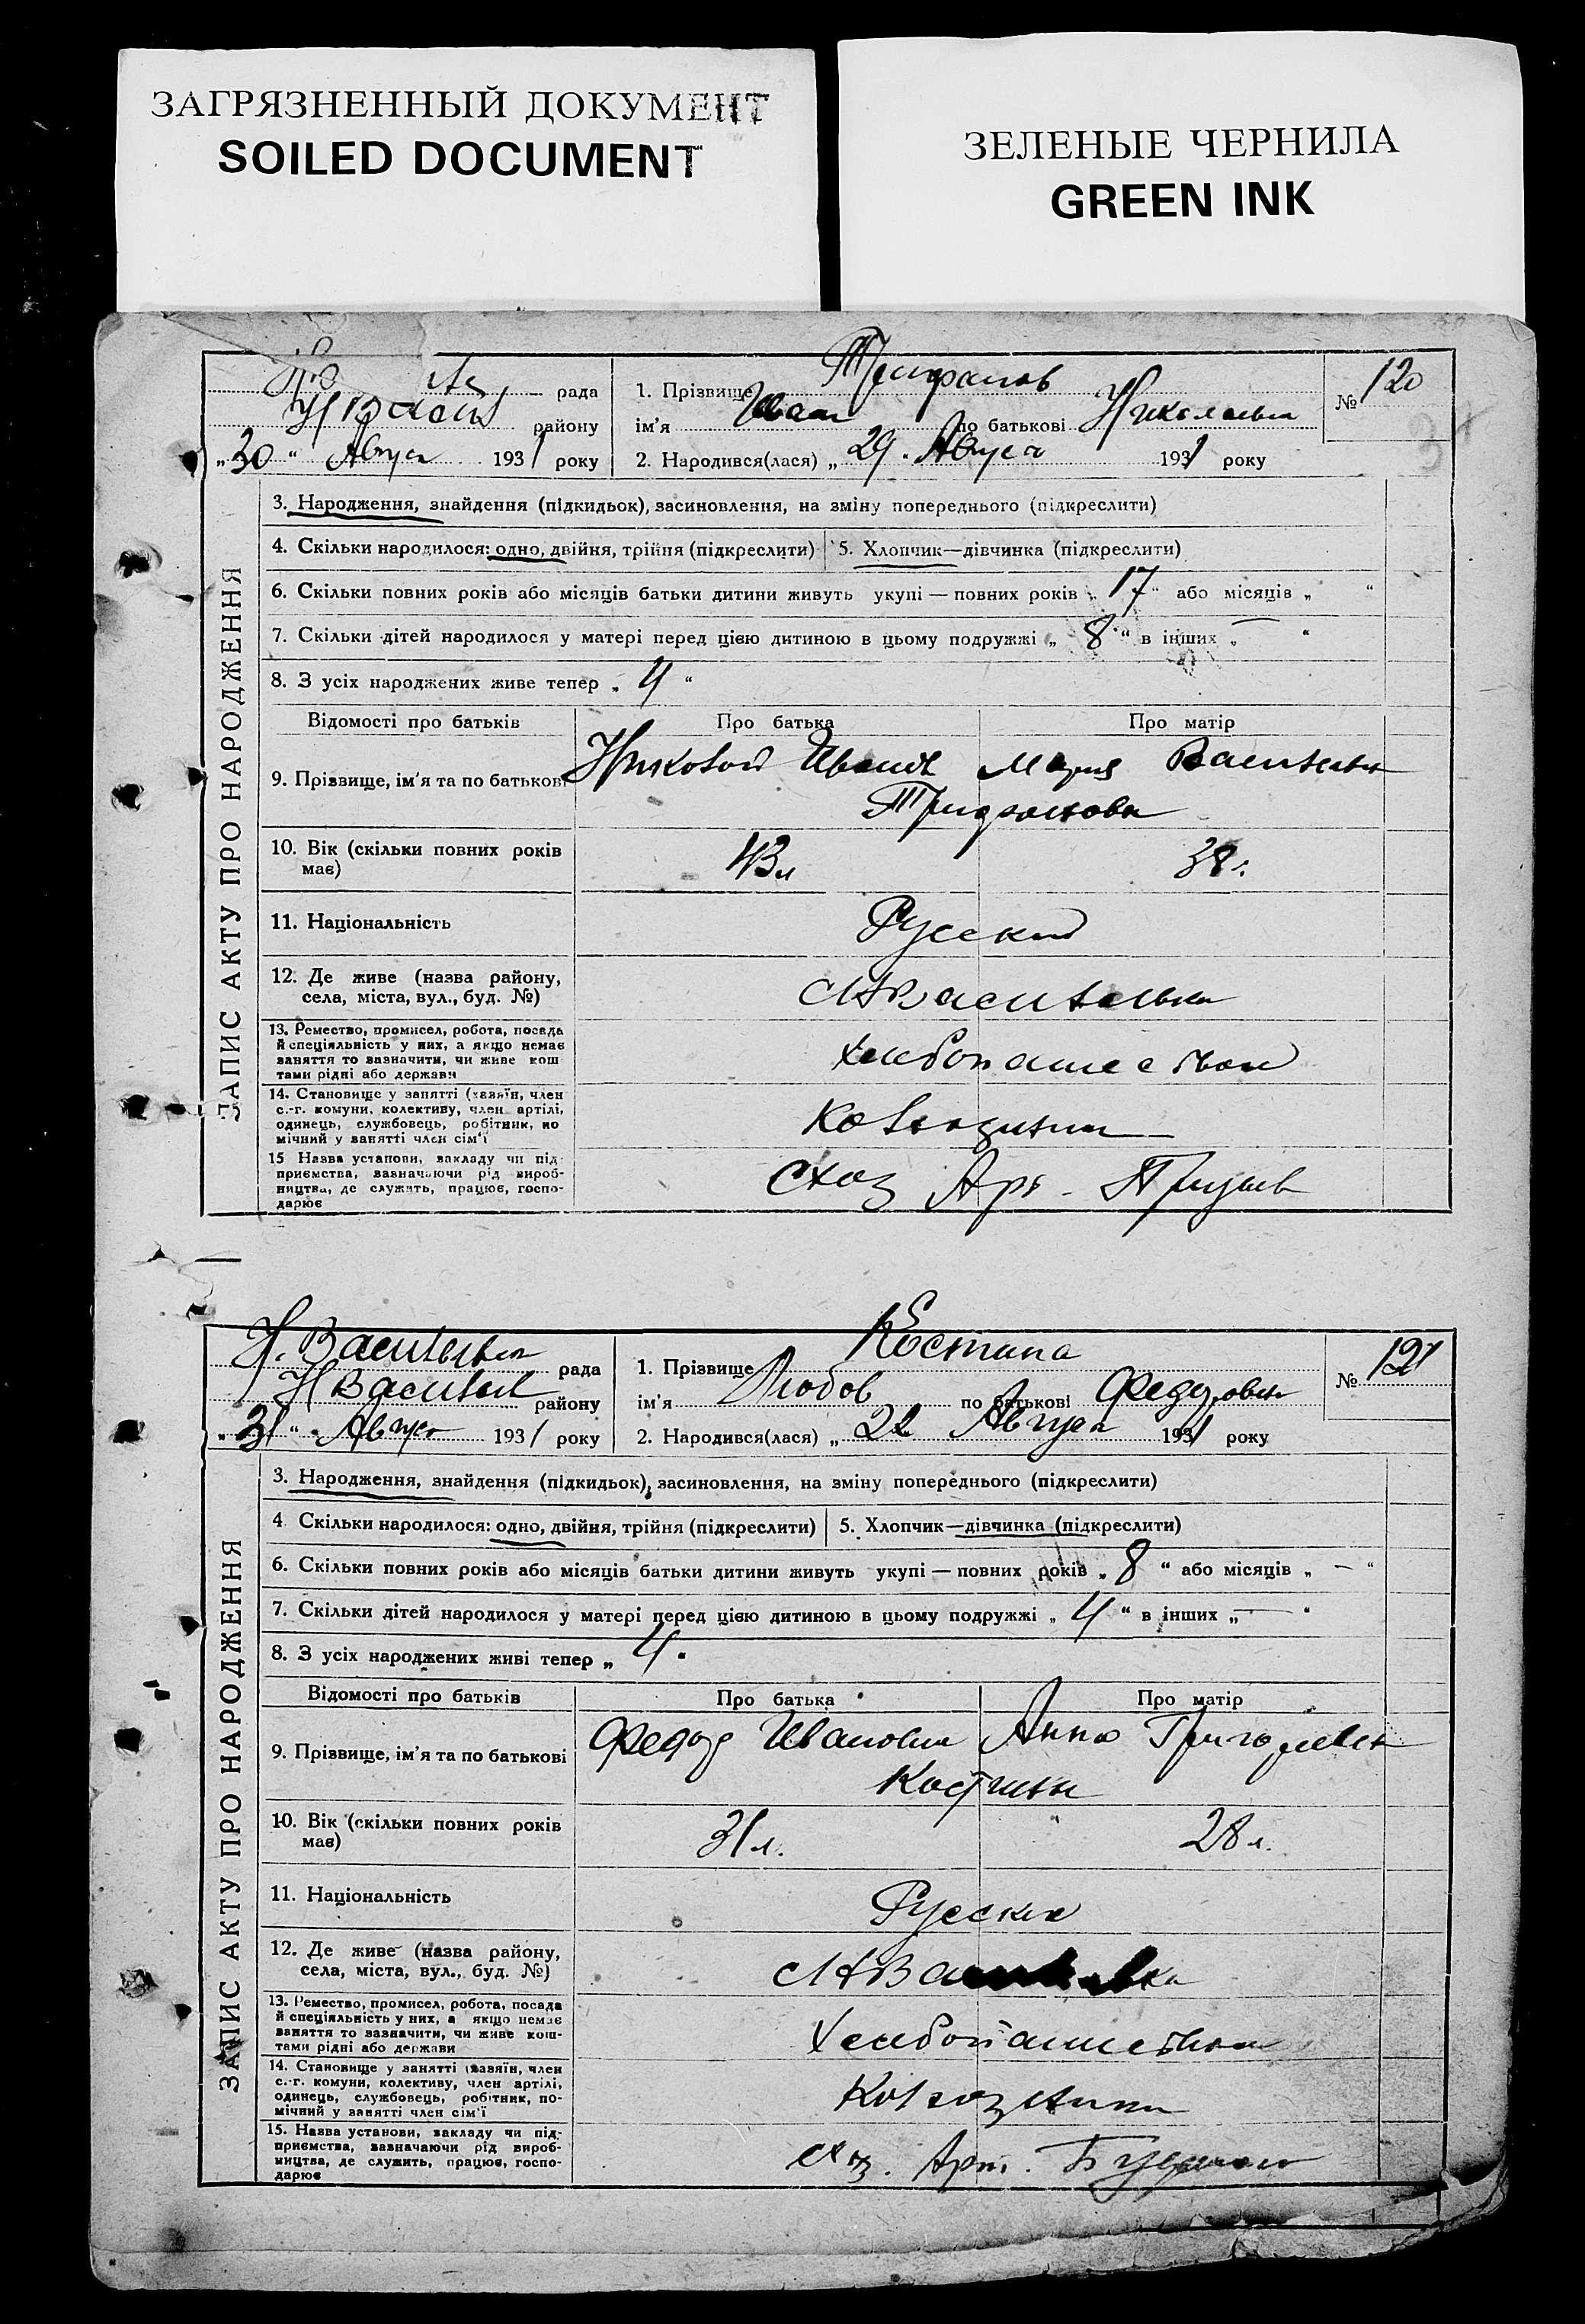 ЗАГРЯЗНЕННЫЙ ДОКУМЕНТ
SOILED DOCUMENT
ЗЕЛЕНЫЕ ЧЕРНИЛА
GREEN INK
рада
району
„30“ Август 1931 року
1. Прізвище
ім'я Иван по батькові Николаевич
2. Народився(лася) „29. Августа 1931 року
№ 120
ЗАПИС АКТУ ПРО НАРОДЖЕННЯ
3. Народження, знайдення (підкидьок), засиновлення, на зміну попереднього (підкреслити)
4. Скільки народилося: одно, двійня, трійня (підкреслити) 5. Хлопчик—дівчинка (підкреслити)
6. Скільки повних років або місяців батьки дитини живуть укупі — повних років „17“ або місяців „ “
7. Скільки дітей народилося у матері перед цією дитиною в цьому подружжі „8“ в інших „—“
8. З усіх народжених живе тепер „4“
Відомості про батьків Про батька Про матір
9. Прізвище, ім'я та по батькові Николай Иванов Мария Васильевн
10. Вік (скільки повних років
має)
43 л 38 л.
11. Національність Русский
12. Де живе (назва району,
села, міста, вул., буд. №)
13. Ремество, промисел, робота, посада
й спеціяльність у них, а якщо немає
заняття то зазначити, чи живе кош
тами рідні або держави
Хлебопашеством
14. Становище у занятті (хазяїн, член
с.-г. комуни, колективу, член артілі,
одинець, службовець, робітник, по
мічний у занятті член сім'ї
Колхозники
15 Назва установи, закладу чи під-
приємства, зазначаючи рід вироб-
ництва, де служить, працює, госпо-
дарює
Схоз Арт.
Н. Васильевка рада
Н Васильев району
„31“ Август 1931 року
1. Прізвище Костина
ім'я Любов по батькові Федоровна
2. Народився(лася) „22 Августа 1931 року
№ 121
ЗАПИС АКТУ ПРО НАРОДЖЕННЯ
3. Народження, знайдення (підкидьок), засиновлення, на зміну попереднього (підкреслити)
4 Скільки народилося: одно, двійня, трійня (підкреслити) 5. Хлопчик—дівчинка (підкреслити)
6. Скільки повних років або місяців батьки дитини живуть укупі — повних років „8“ або місяців „—“
7. Скільки дітей народилося у матері перед цією дитиною в цьому подружжі „4“ в інших „—“
8. З усіх народжених живі тепер „4“
Відомості про батьків Про батька Про матір
9. Прізвище, ім'я та по батькові Федор Иванович Анна Григорьевн
Костины
10. Вік (скільки повних років
має)
31 л. 28 л.
11. Національність Русские
12. Де живе (назва району,
села, міста, вул., буд. №)
13. Ремество, промисел, робота, посада
й спеціяльність у них, а якщо немає
заняття то зазначити, чи живе кош-
тами рідні або держави
Хлебопашество
14. Становище у занятті (хазяїн, член
с.-г. комуни, колективу, член артілі,
одинець, службовець, робітник, по-
мічний у занятті член сім'ї
Колхозники
15. Назва установи, закладу чи під-
приємства, зазначаючи рід вироб-
ництва, де служить, працює, госпо-
дарює
схоз. Арт.